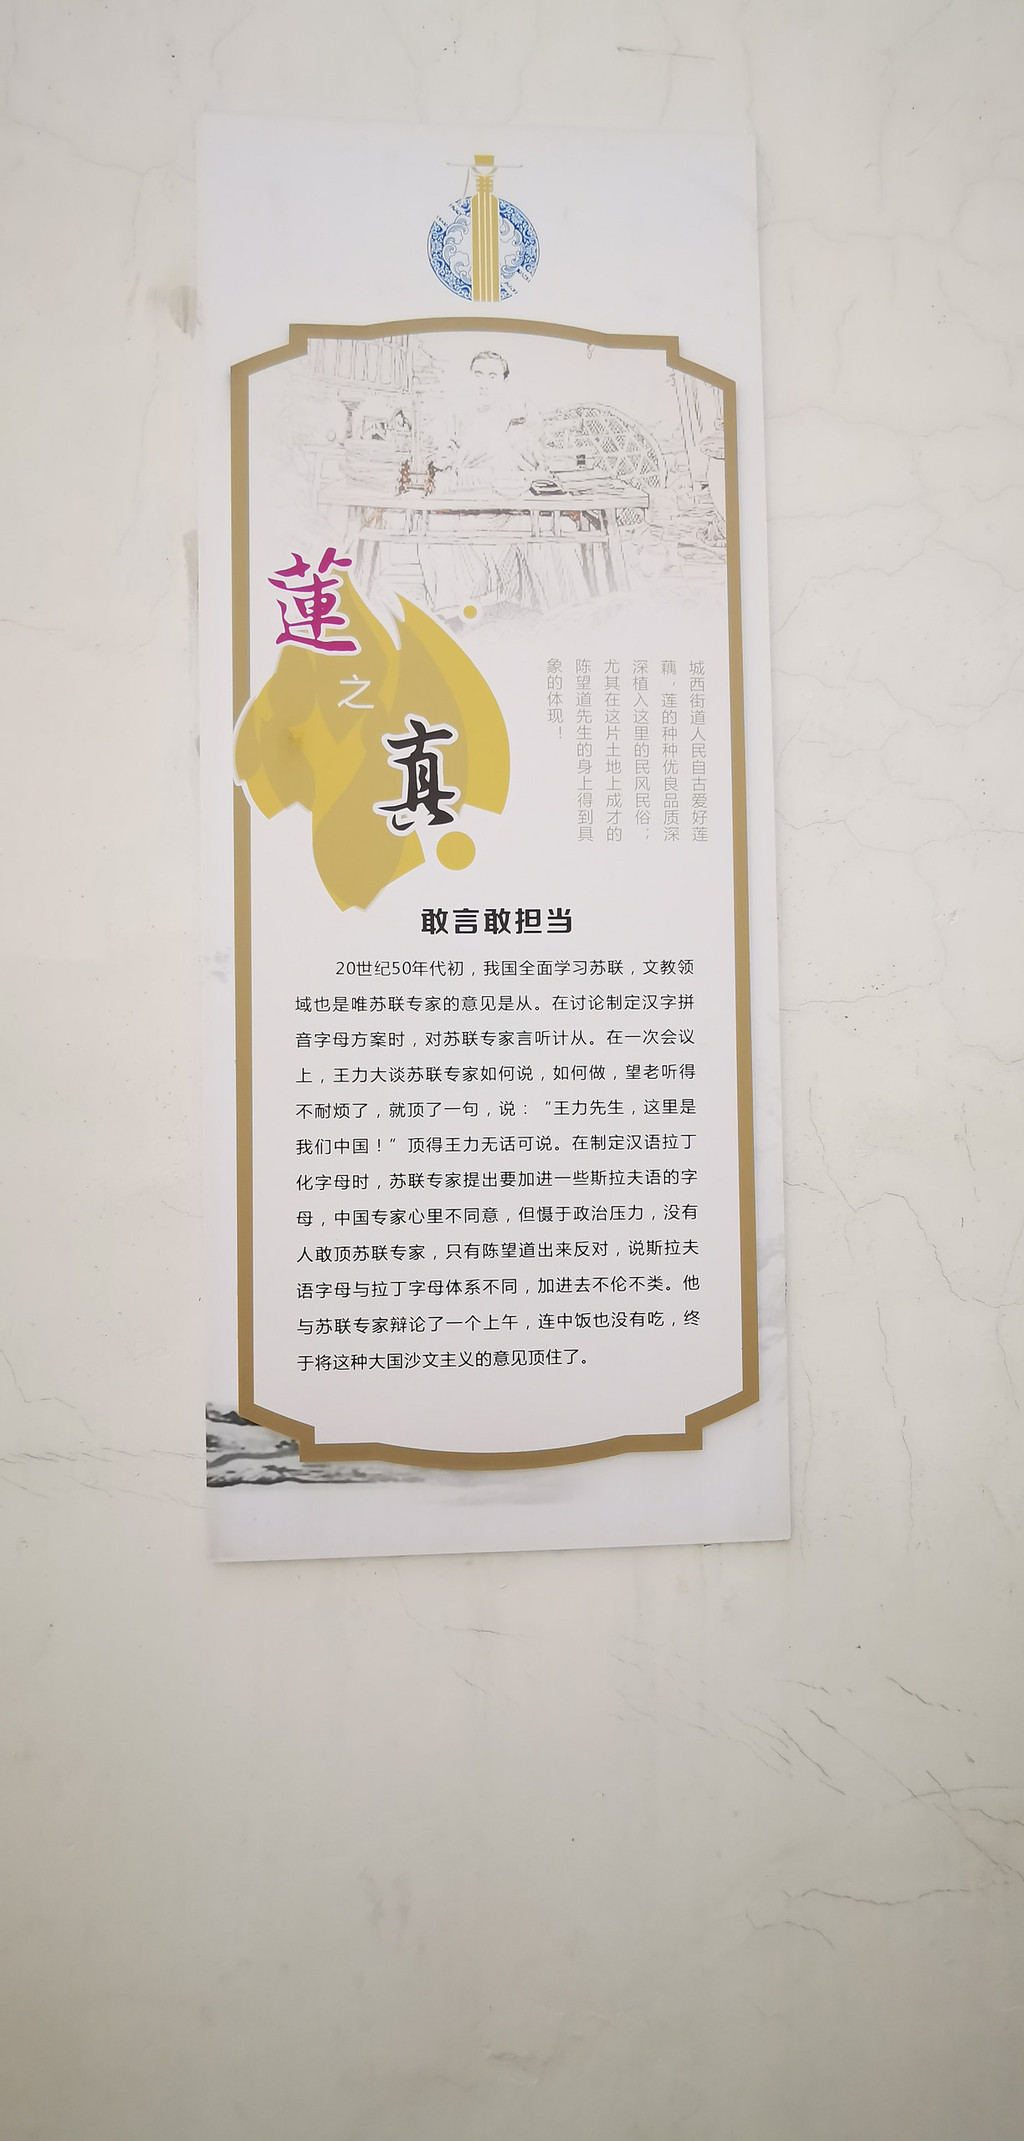 蓮
之
真
城西街道人民自古爱好莲
藕，莲的种种优良品质深
深植入这里的民风民俗；
尤其在这片土地上成才的
陈望道先生的身上得到具
象的体现！
敢言敢担当
20世纪50年代初，我国全面学习苏联，文教领
域也是唯苏联专家的意见是从。在讨论制定汉字拼
音字母方案时，对苏联专家言听计从。在一次会议
上，王力大谈苏联专家如何说，如何做，望老听得
不耐烦了，就顶了一句，说：“王力先生，这里是
我们中国！”顶得王力无话可说。在制定汉语拉丁
化字母时，苏联专家提出要加进一些斯拉夫语的字
母，中国专家心里不同意，但慑于政治压力，没有
人敢顶苏联专家，只有陈望道出来反对，说斯拉夫
语字母与拉丁字母体系不同，加进去不伦不类。他
与苏联专家辩论了一个上午，连中饭也没有吃，终
于将这种大国沙文主义的意见顶住了。